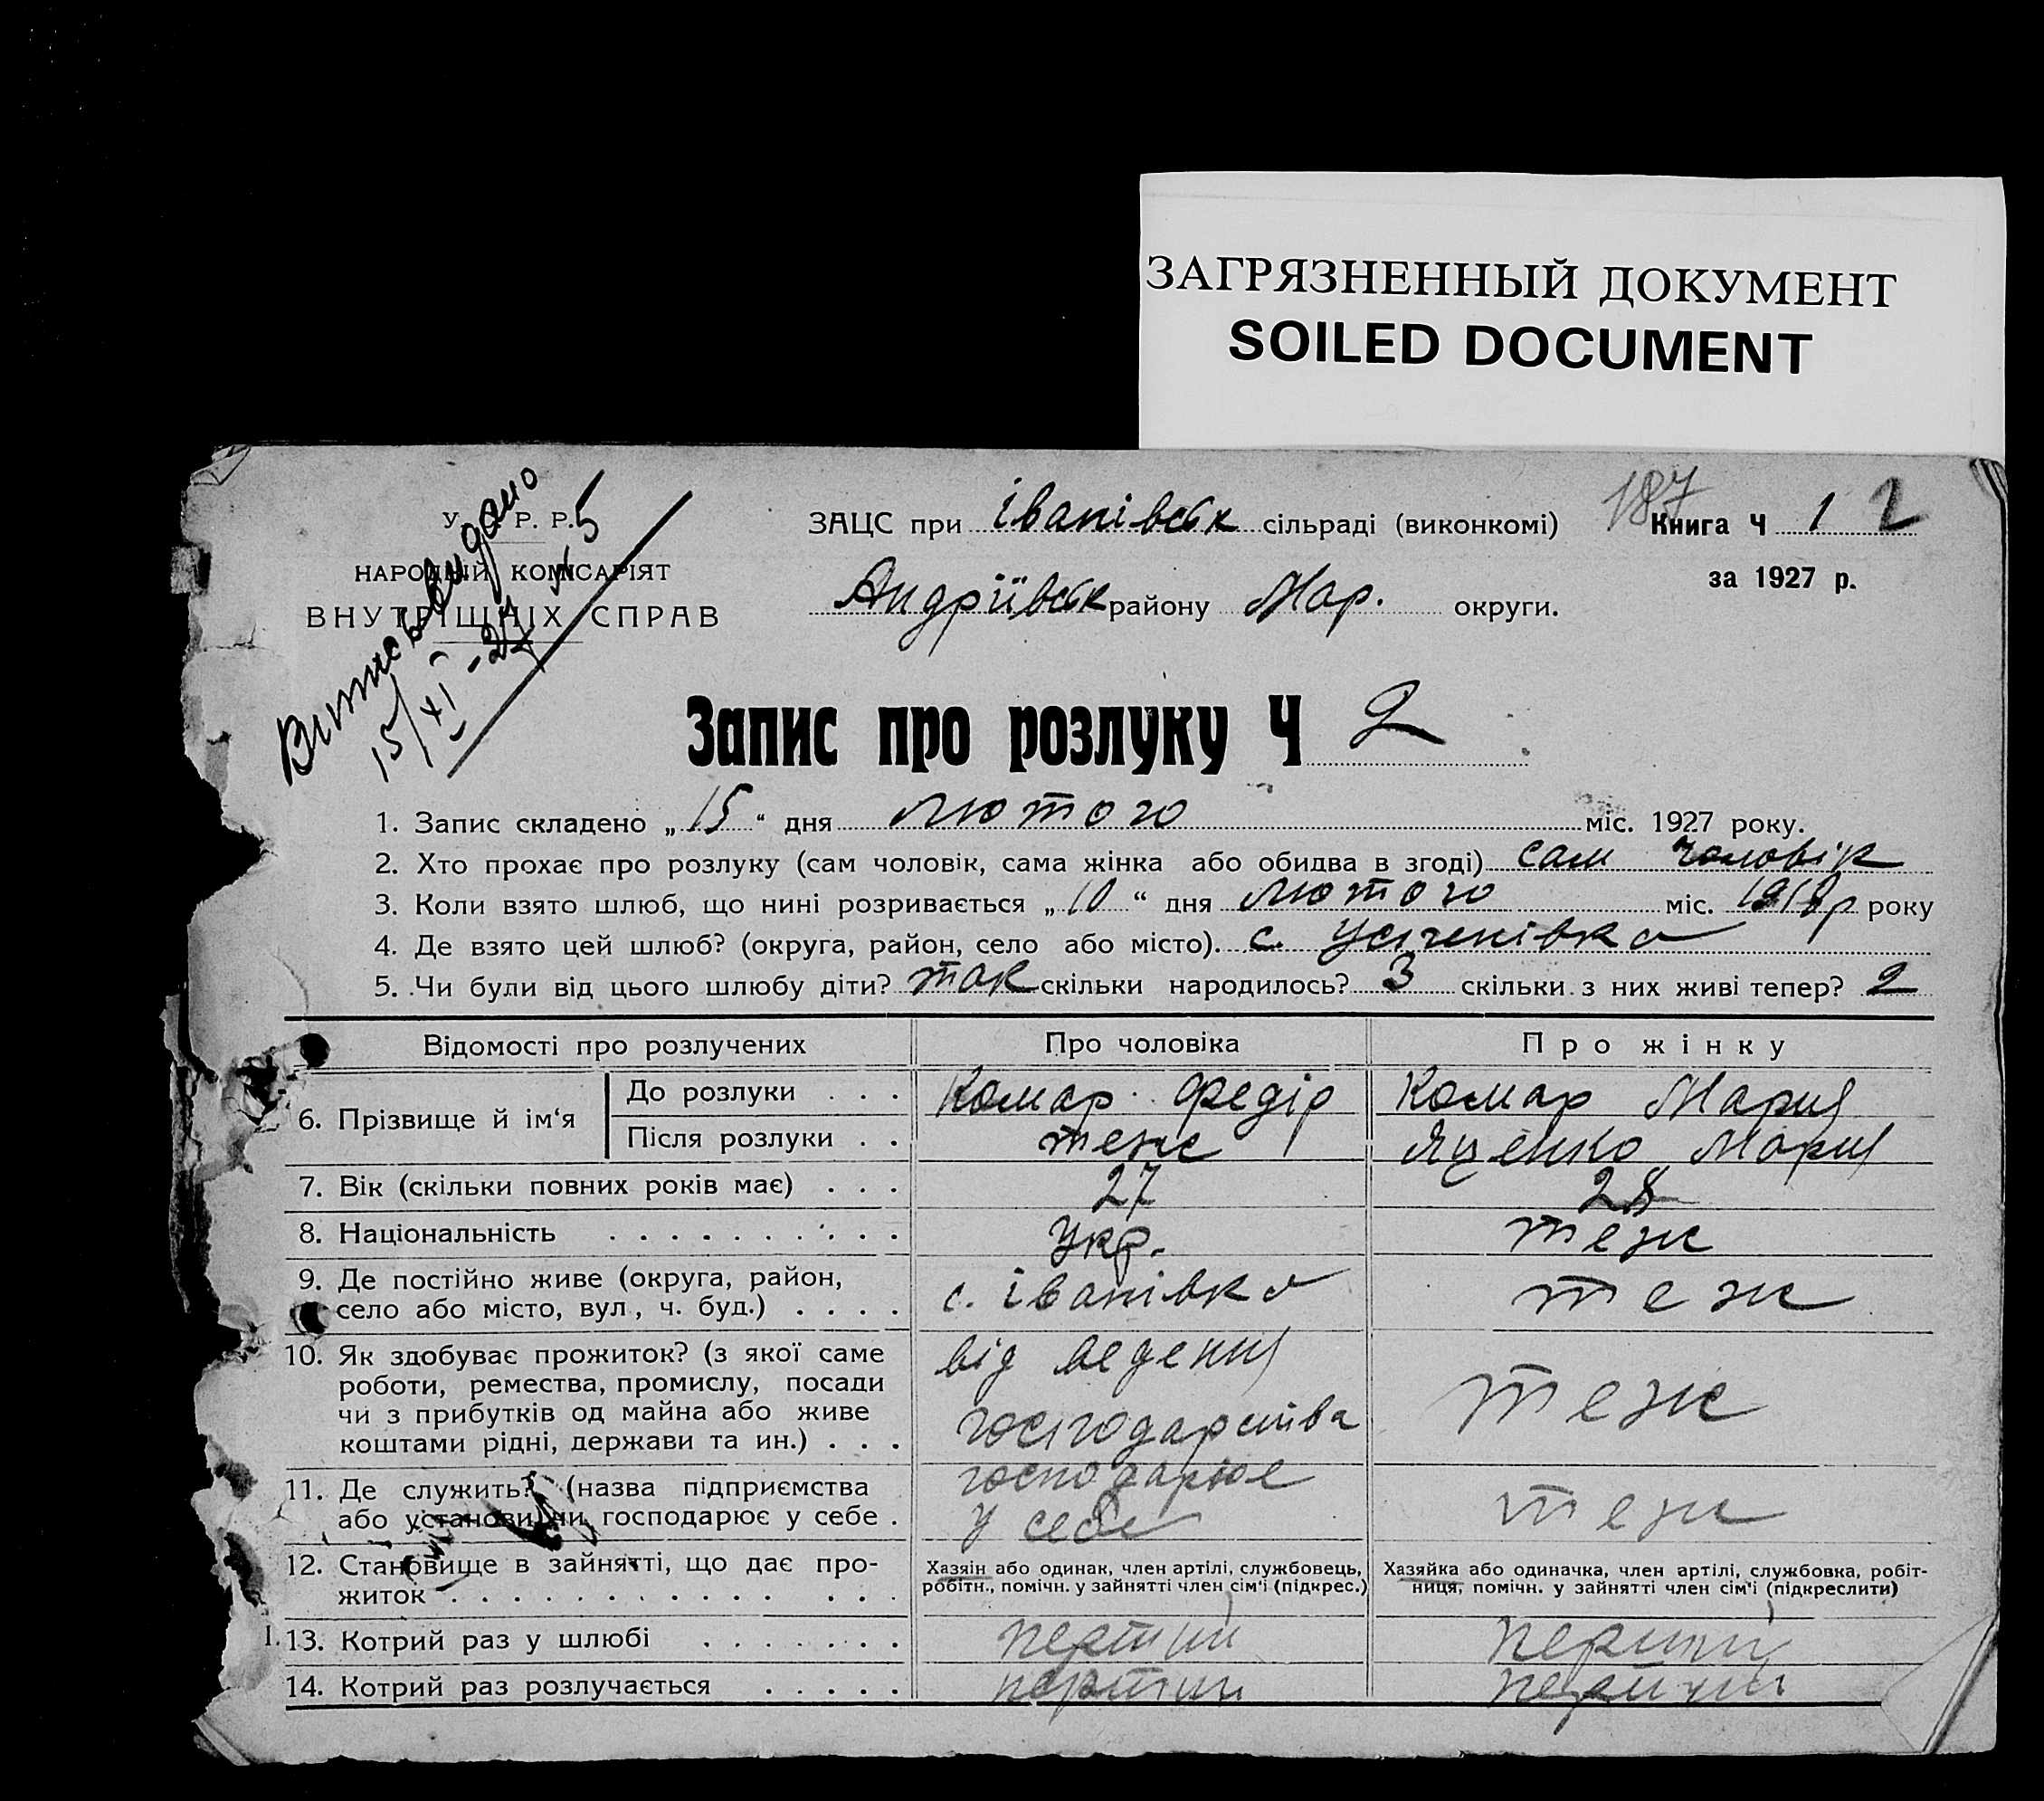 ЗАГРЯЗНЕННЫЙ ДОКУМЕНТ
SOILED DOCUMENT
Витис видано
15/XI-27 № 5
У. Р. Р.
НАРОДНІЙ КОМІСАРІЯТ
ВНУТРІШНІХ СПРАВ
ЗАЦС при Іванівськ сільраді (виконкомі)
Андріївськ району Мар. округи.
187
Книга Ч 1 2
за 1927 р.
Запис про розлуку Ч 2
1. Запис складено „ 15 “ дня лютого міс. 1927 року.
2. Хто прохає про розлуку (сам чоловік, сама жінка або обидва в згоді) сам чоловік
3. Коли взято шлюб, що нині розривається „ 10 “ дня лютого міс. 1918 р року
4. Де взято цей шлюб? (округа, район, село або місто). с.
5. Чи були від цього шлюбу діти? так скільки народилось? 3 скільки з них живі тепер? 2
Відомості про розлучених Про чоловіка Про жінку
6. Прізвище й ім‘я До розлуки . . . Комар Федір Комар Мария
Після розлуки . . теж Яценко Мария
7. Вік (скільки повних років має) . . . 27 28
8. Національність . . . . . . . . . . Укр. теж
9. Де постійно живе (округа, район,
село або місто, вул., ч. буд.) . . . . с. Іванівка теж
10. Як здобуває прожиток? (з якої саме
роботи, ремества, промислу, посади
чи з прибутків од майна або живе
коштами рідні, держави та ин.) . . .
від ведения
господарства
теж
11. Де служить? (назва підприємства
або установи чи господарює у себе .
господарює
у себе
теж
12. Становище в зайнятті, що дає про-
житок . . . . . . . . . . . . . .
Хазяін або одинак, член артілі, службовець,
робітн., помічн. у зайнятті член сім‘і (підкрес.)
Хазяйка або одиначка, член артілі, службовка, робіт-
ниця, помічн. у зайнятті член сім‘і (підкреслити)
13. Котрий раз у шлюбі . . . . . . . перший перший
14. Котрий раз розлучається . . . . . перший перший